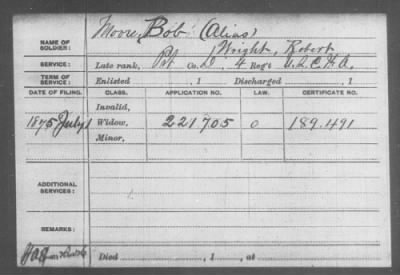 Moore, Bob (Alias)
NAME OF SOLDIER: Wright, Robert
SERVICE: Late rank, Pvt Co. D, 4 Reg't U.S.C.H.A.
TERM OF SERVICE: Enlisted , 1 Discharged , 1
DATE OF FILING. CLASS. APPLICATION NO. LAW. CERTIFICATE NO.
Invalid,
1875 July Widow, 221705 0 189.491
Minor,
ADDITIONAL SERVICES:
REMARKS:
Died , 1 , at